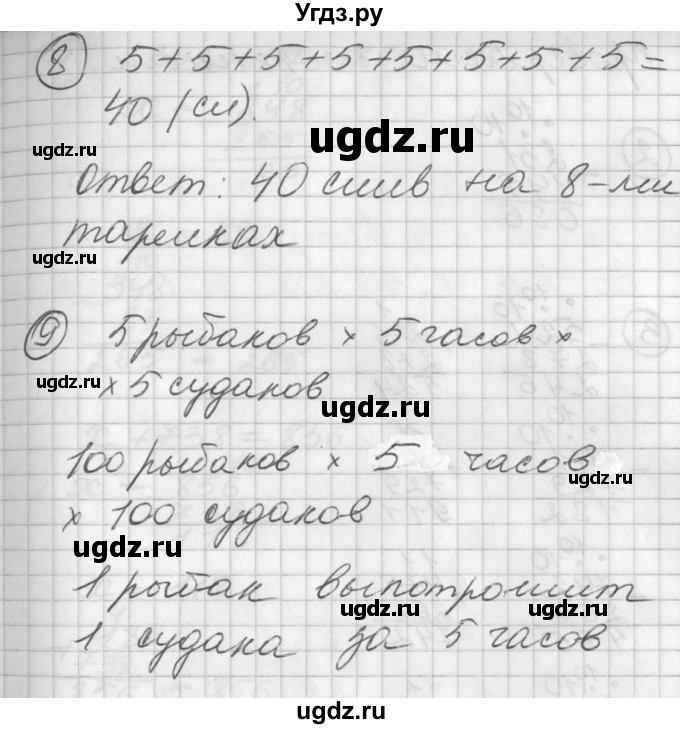 Угдз.ру
8 5+5+5+5+5+5+5+5=
40 (сл).
ugdz.ru
ugdz.ru
Ответ: 40 слив на 8-ми
тарелках
ugdz.ru
9 5 рыбаков × 5 часов ×
ugdz.ru
× 5 судаков
ugdz.ru
100 рыбаков × 5 часов
ugdz.ru
× 100 судаков
ugdz.ru
1 рыбак выпотрошит
ugdz.ru ugdz.ru
1 судака за 5 часов
ugdz.ru